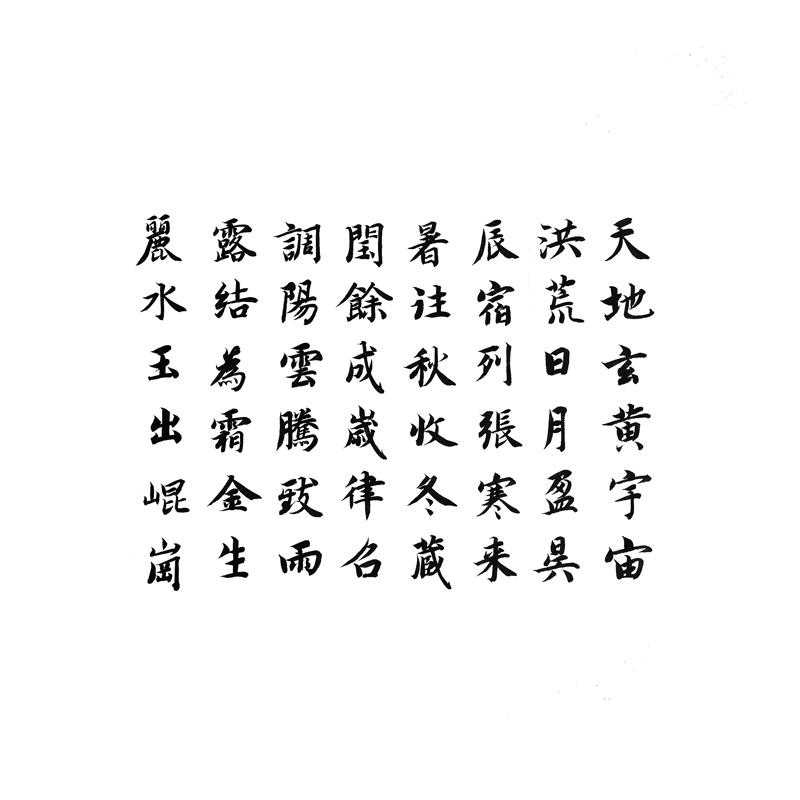 天地玄黄宇宙
洪荒日月盈昃
辰宿列張寒来
暑往秋收冬蔵
閏餘成嵗律召
調陽雲騰致雨
露結為霜金生
麗水玉出崐崗